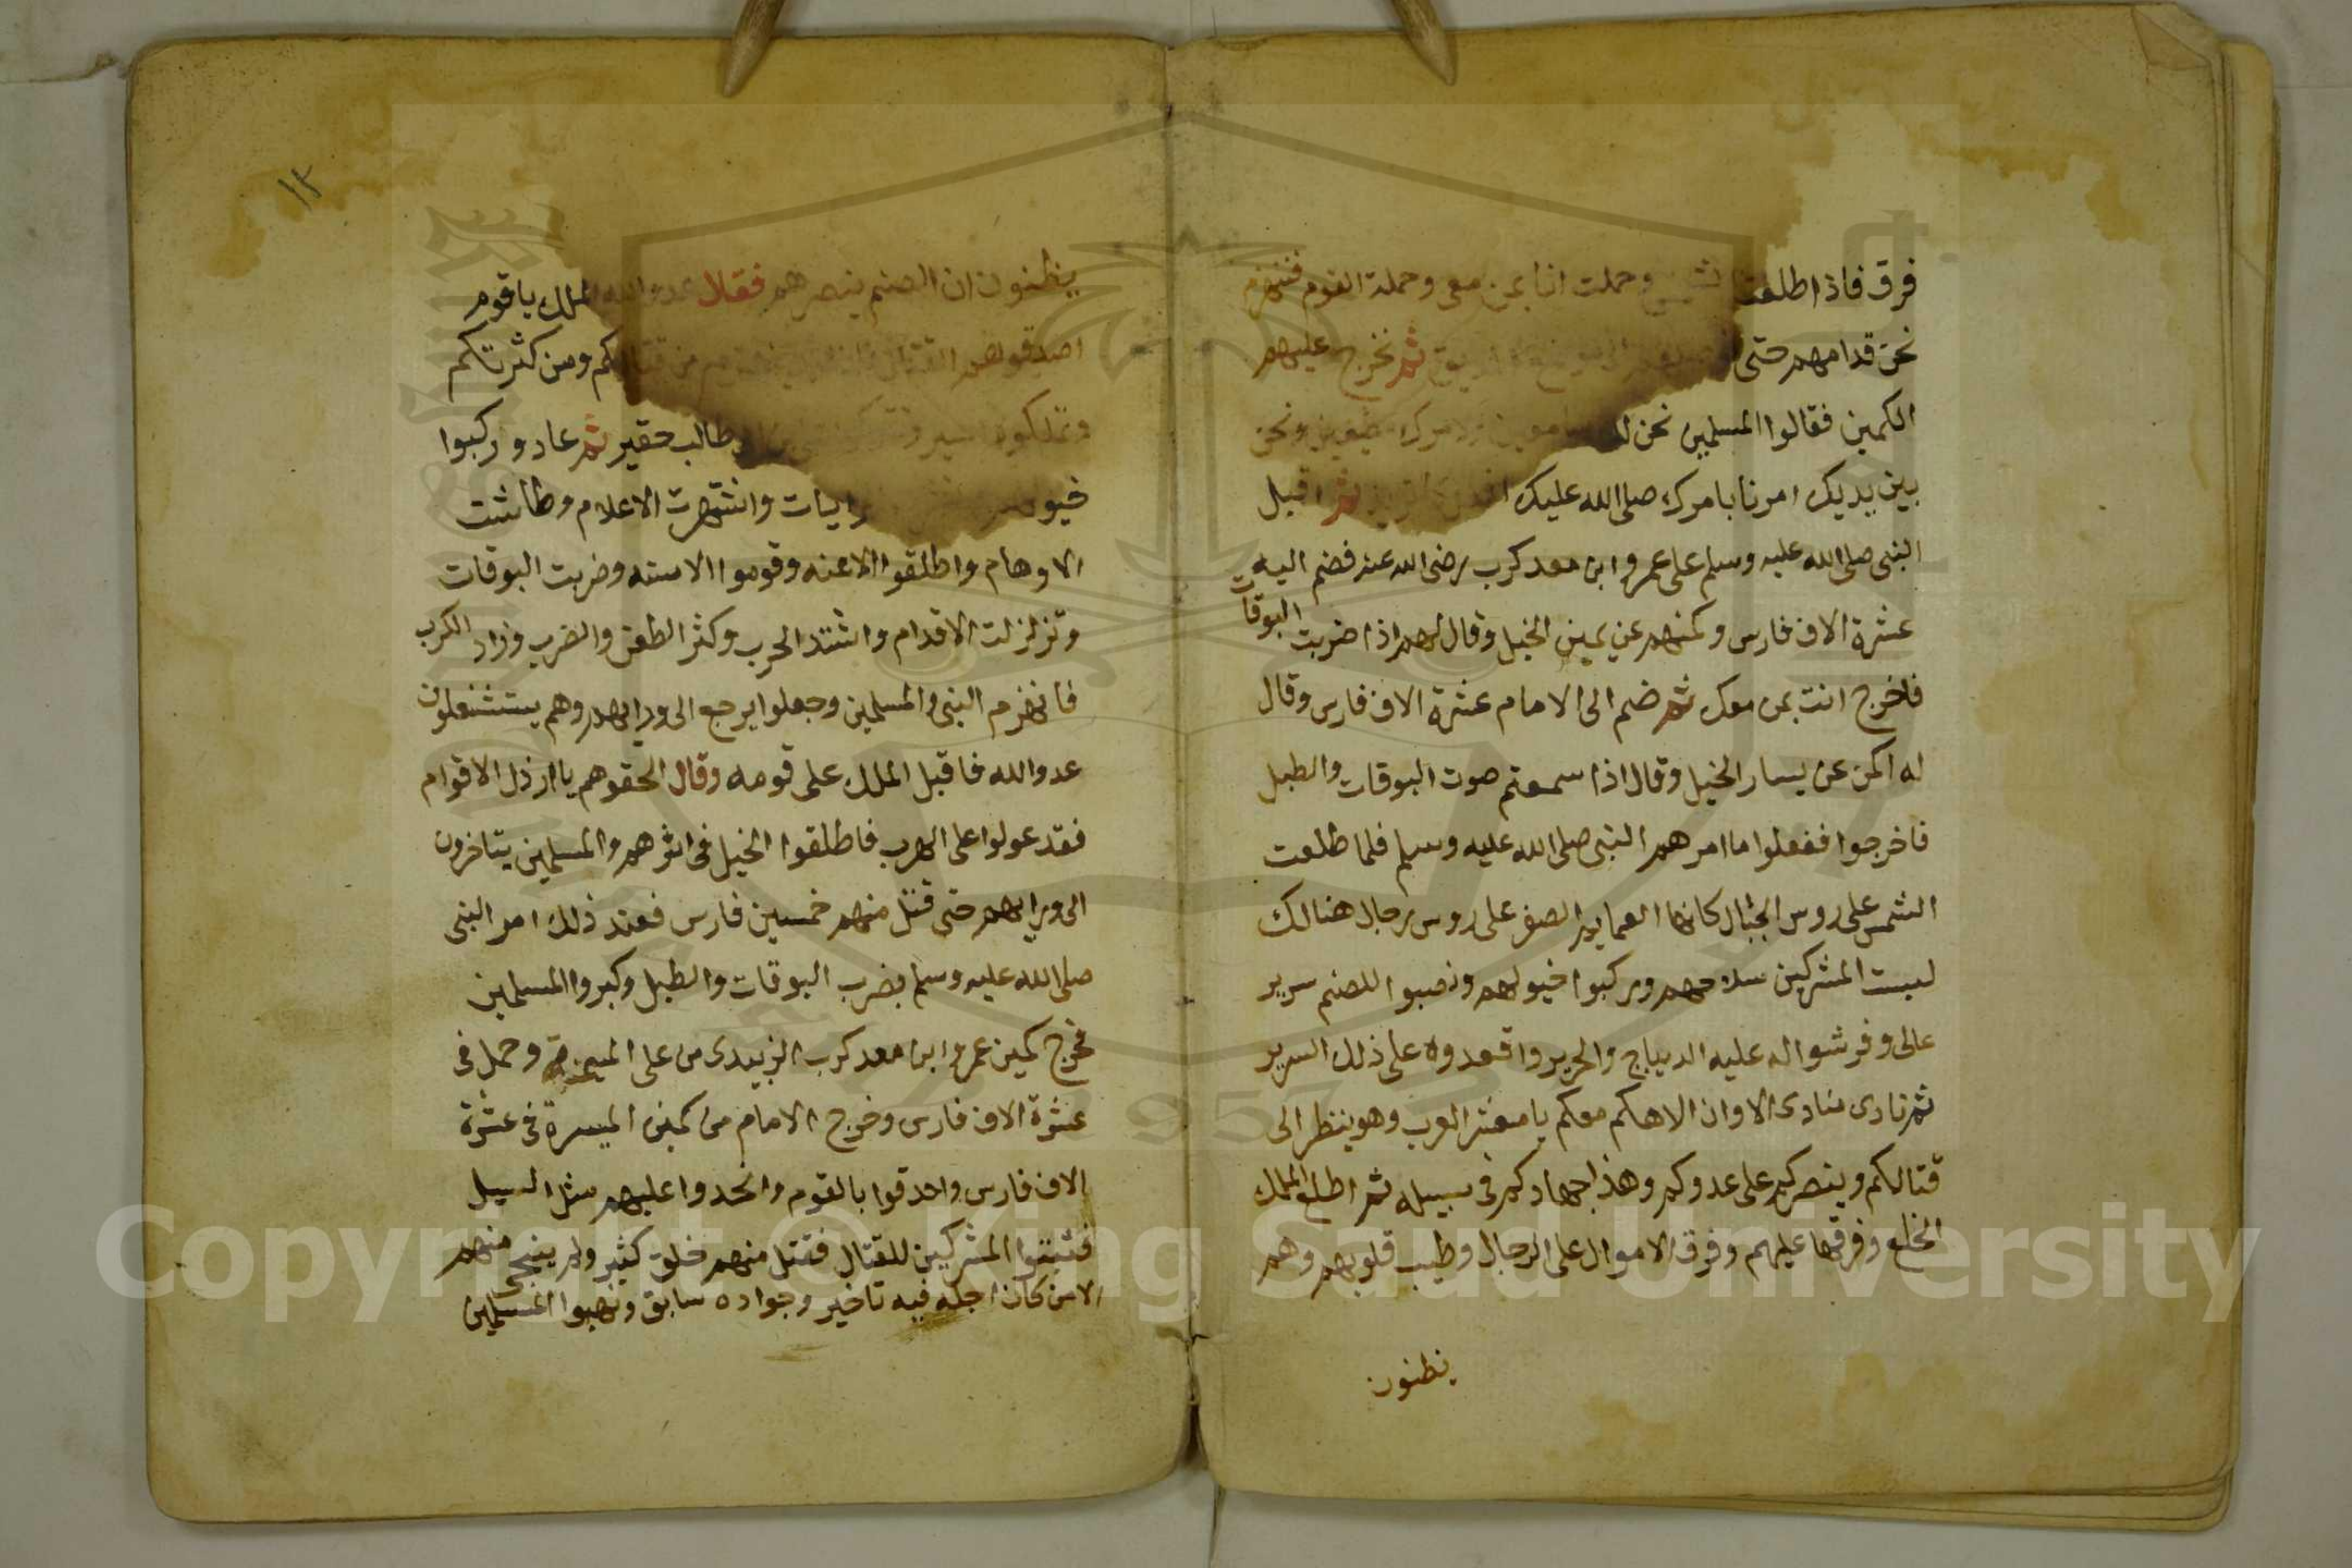 فرق فاذا اطلعت الشمس وحملت انا بمن معى وحملة القوم فننهزم
نحن قدامهم حتى ثم نخرج عليهم
الكمين فقالوا المسلمين نحن لك سامعين ولامرك مطيعين ونحن
بين يديك امرنا بامرك صلى الله عليك ثم اقبل
النبى صلى الله عليه وسلم على عمروا ابن معد كرب رضى الله عنه فضم اليه
عشرة الاف فارس وكمنهم عن يمين الخيل وقال لهم اذا ضربت البوقات
فاخرج انت بمن معك ثم ضم الى الامام عشرة الاف فارس وقال
له اكمن عن يسار الخيل وقال اذا سمعتم صوت البوقات والطبل
فاخرجوا ففعلوا ما امرهم النبى صلى الله عليه وسلم فلما طلعت
الشمس على روس الجبال كانها العمايم الصفر على روس رجال هنالك
لبست المشركين سلاحهم وركبوا خيولهم ونصبوا للصنم سرير
عالى وفرشوا له عليه الديباج والحرير واقعدوه على ذلك السرير
ثم نادى منادى الا وان الاهكم معكم يا معشر العرب وهو ينظر الى
قتالكم وينصركم على عدوكم وهذا جهادكم فى سبيله ثم اطلع الملك
الخلع وفرقها عليهم وفرق الاموال على الرجال وطيب قلوبهم وهم
يظنون
١٣
يظنون ان الصنم ينصرهم فقال عدو الله الملك يا قوم
اصدقوهم القتال من قتالكم ومن كثرتكم
طالب حقير ثم عاد وركبوا
خيولهم الرايات وانتشرت الاعلام وطاشت
الاوهام واطلقوا الاعنه وقوموا الاسنه وضربت البوقات
وتزلزلت الاقدام واشتد الحرب وكثر الطعن والضرب وزاد الكرب
فانهزم النبى والمسلمين وجعلوا يرجع الى ورايهم وهم يستشغلون
عدو الله فاقبل الملك على قومه وقال الحقوهم يا ارذل الاقوام
فقد عولوا على الهرب فاطلقوا الخيل فى اثرهم والمسلمين يتاخرون
الى ورايهم حتى قتل منهم خمسين فارس فعند ذلك امر النبى
صلى الله عليه وسلم بضرب البوقات والطبل وكبروا المسلمين
فخرج كمين عمروا ابن معد كرب الزبيدى من على الميمنة وحمل فى
عشرة الاف فارس وخرج الامام من كمين الميسرة فى عشرة
الاف فارس واحدقوا بالقوم وانحدوا عليهم مثل السيل
فثبتوا المشركين للقتال فقتل منهم خلق كثير ولم ينجى منهم
الا من كان اجله فيه تاخير وجواده سابق ونهبوا المسلمين
Copyright © King Saud University